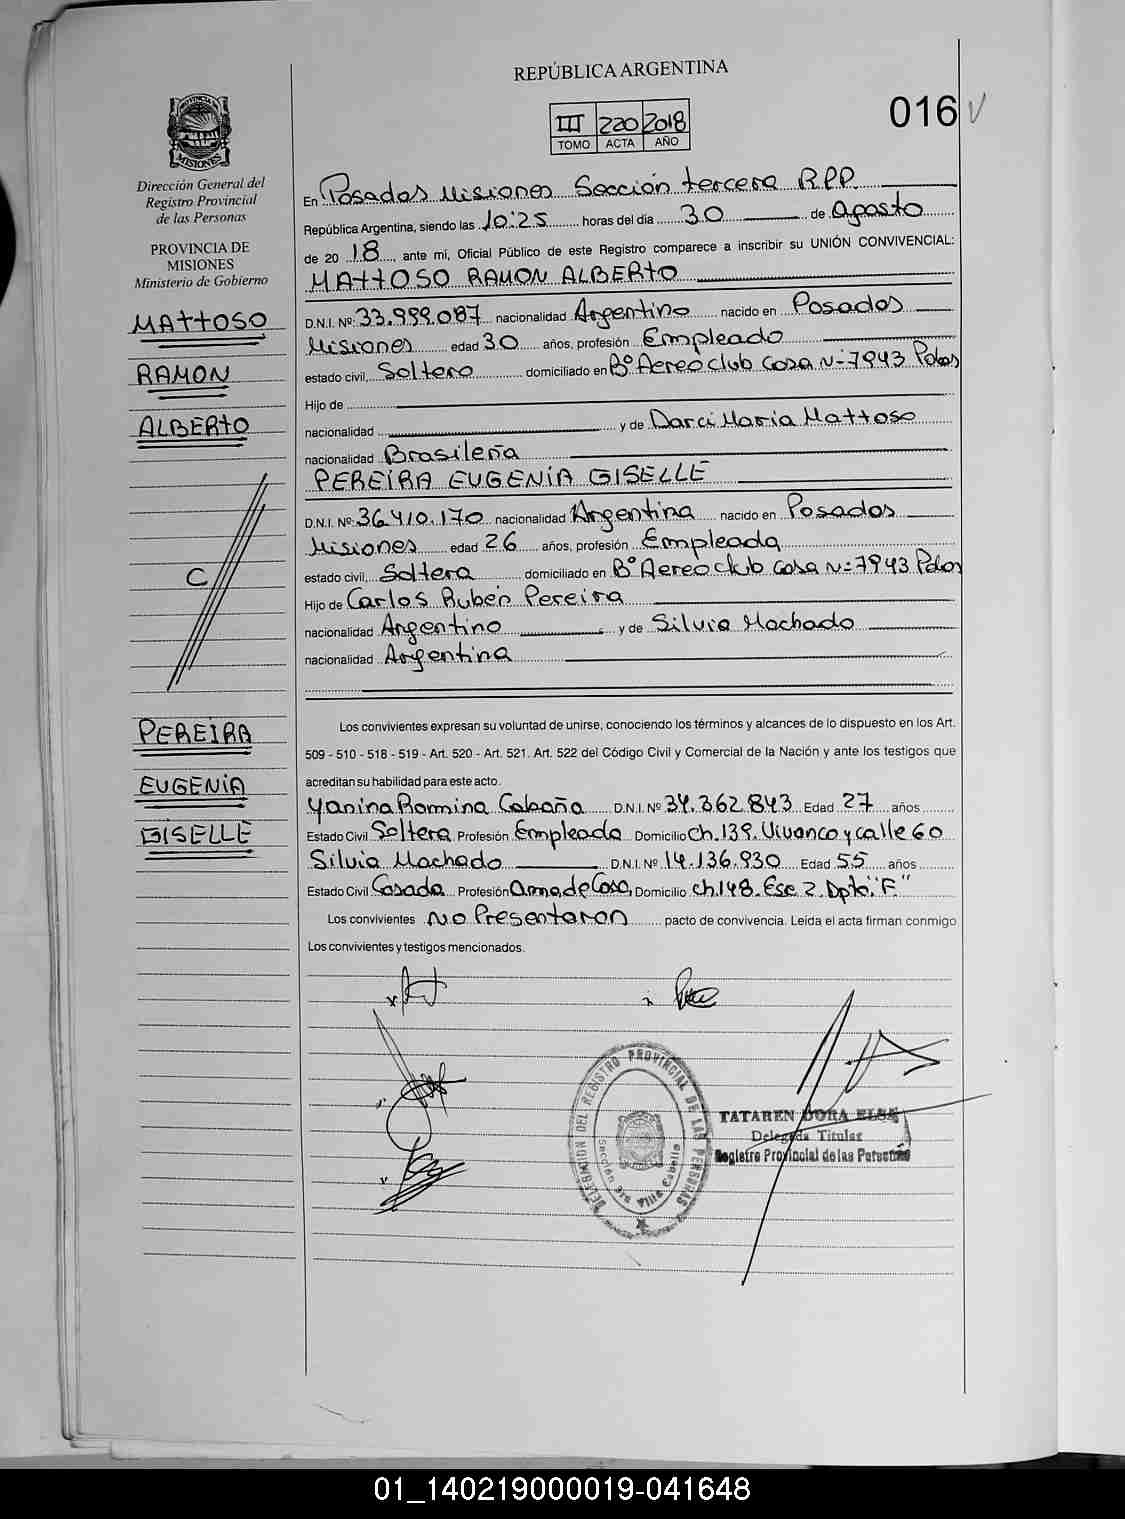 REPÚBLICA ARGENTINA
III 220 2018
TOMO ACTA AÑO
016
Dirección General del
Registro Provincial
de las Personas
PROVINCIA DE
MISIONES
Ministerio de Gobierno
MATTOSO
RAMON
ALBERTO
C
PEREIRA
EUGENIA
GISELLE
En Posadas Misiones Sección tercera R.P.P.
República Argentina, siendo las 10:25 horas del día 30 de Agosto
de 20 18, ante mi, Oficial Público de este Registro comparece a inscribir su UNIÓN CONVIVENCIAL:
MATTOSO RAMON ALBERTO
D.N.I. Nº: 33.999.087 nacionalidad Argentino nacido en Posadas
Misiones edad 30 años, profesión Empleado
estado civil, Soltero domiciliado en Bº Aereo club Casa N=7943 Pdas
Hijo de
nacionalidad y de Darci Maria Mattoso
nacionalidad Brasileña
PEREIRA EUGENIA GISELLE
D.N.I. Nº: 36.410.170 nacionalidad Argentina nacido en Posadas
Misiones edad 26 años, profesión Empleada
estado civil, Soltera domiciliado en Bº Aereo club Casa N=7943 Pdas
Hijo de Carlos Rubén Pereira
nacionalidad Argentino y de Silvia Machado
nacionalidad Argentina
Los convivientes expresan su voluntad de unirse, conociendo los términos y alcances de lo dispuesto en los Art.
509 - 510 - 518 - 519 - Art. 520 - Art. 521. Art. 522 del Código Civil y Comercial de la Nación y ante los testigos que
acreditan su habilidad para este acto.
Yanina Romina Cabaña D.N.I. Nº 34.362.843 Edad 27 años
Estado Civil Soltera Profesión Empleada Domicilio Ch.139. Vivanco y calle 60
Silvia Machado D.N.I. Nº 14.136.930 Edad 55 años
Estado Civil Casada Profesión Ama de Casa, Domicilio Ch.148. Esc 2. Dpto. "F"
Los convivientes No Presentaron pacto de convivencia. Leída el acta firman conmigo
Los convivientes y testigos mencionados.
DELEGACION DEL REGISTRO PROVINCIAL DE LAS PERSONAS
Sección 3ra Villa Cabello
TATAREN DORA ELSA
Delegada Titular
Registro Provincial de las Personas
01_140219000019-041648